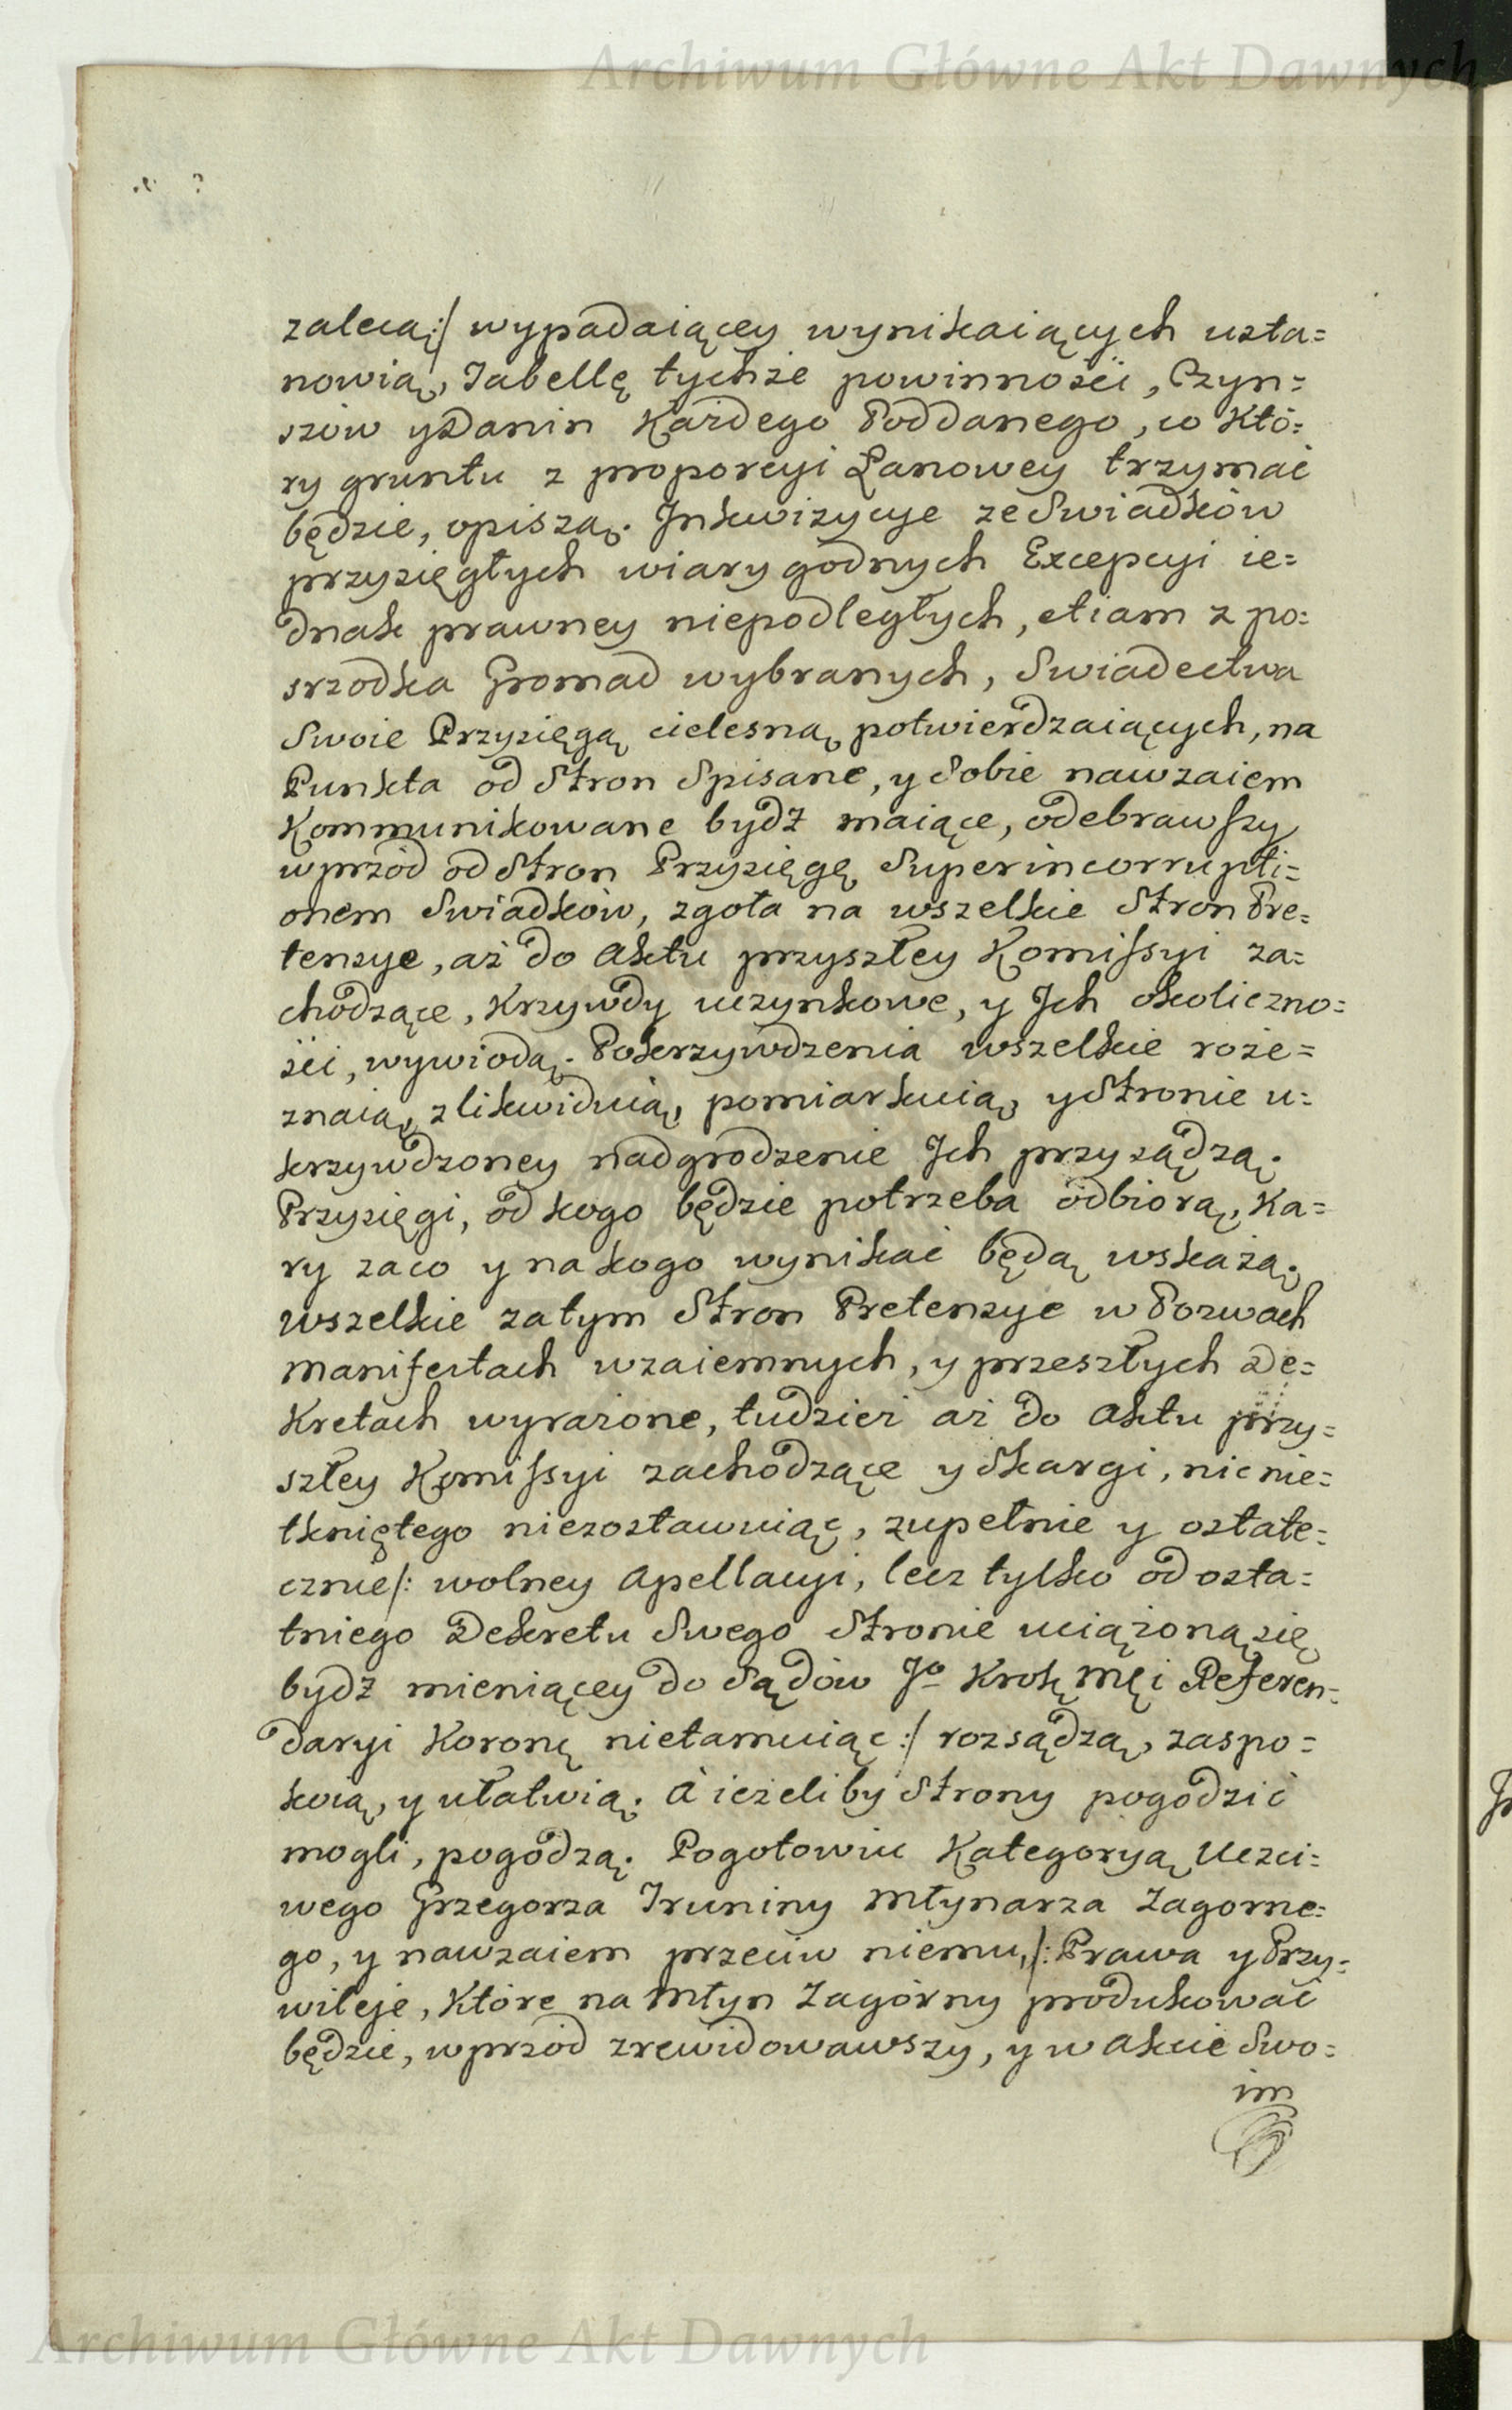 Archiwum Główne Akt Dawnych
zalecą:/ wypadaiącey wynikaiących usta=
nowią, Tabellę tychże powinności, Czyn=
szów y Danin Każdego Poddanego, co Któ=
ry gruntu z proporcyi Łanowey trzymać
będzie, opiszą. Inkwizycye ze Swiadków
przysięgłych wiary godnych Excepcyi ie=
dnak prawney niepodległych, etiam z po=
srzodka Gromad wybranych, Swiadectwa
Swoie Przysięgą cielesną potwierdzaiących, na
Punkta od Stron Spisane, y Sobie nawzaiem
Kommunikowane bydź maiące, odebrawszy
wprzód od Stron Przysięgę Super incorrupti=
onem Swiadków, zgoła na wszelkie Stron Pre=
tensye, aż do Aktu przyszłey Komissyi za=
chodzące, Krzywdy uczynkowe, y Ich okoliczno=
ści, wywiodą. Pokrzywdzenia wszelkie roze=
znaią, zlikwiduią, pomiarkuią, y Stronie u=
krzywdzoney nadgrodzenie Ich przysądzą.
Przysięgi, od kogo będzie potrzeba odbiorą, Ka=
ry zaco y na kogo wynikać będą wskażą.
wszelkie zatym Stron Pretensye w Pozwach
Manifestach wzaiemnych, y przeszłych De=
Kretach wyrażone, tudzież aż do Aktu przy=
szłey Komissyi zachodzące y Skargi, nic nie=
tkniętego niezostawuiąc, zupełnie y ostate=
cznie/: wolney Apellacyi, lecz tylko od osta=
tniego Dekretu Swego Stronie uciążoną się
bydź mieniącey do Sądów Jo Krolę Mci Referen=
daryi Koronę nietamuiąc:/ rozsądzą, zaspo=
koią, y ułatwią. A ieżeliby Strony pogodzić
mogli, pogodzą. Pogotowiu Kategoryą Uczci=
wego Grzegorza Truniny Młynarza Zagorne=
go, y nawzaiem przeciw niemu,/: Prawa y Przy=
wileje, Które na Młyn Zagórny produkować
będzie, wprzód zrewidowawszy, y w Akcie Swo=
im
Archiwum Główne Akt Dawnych